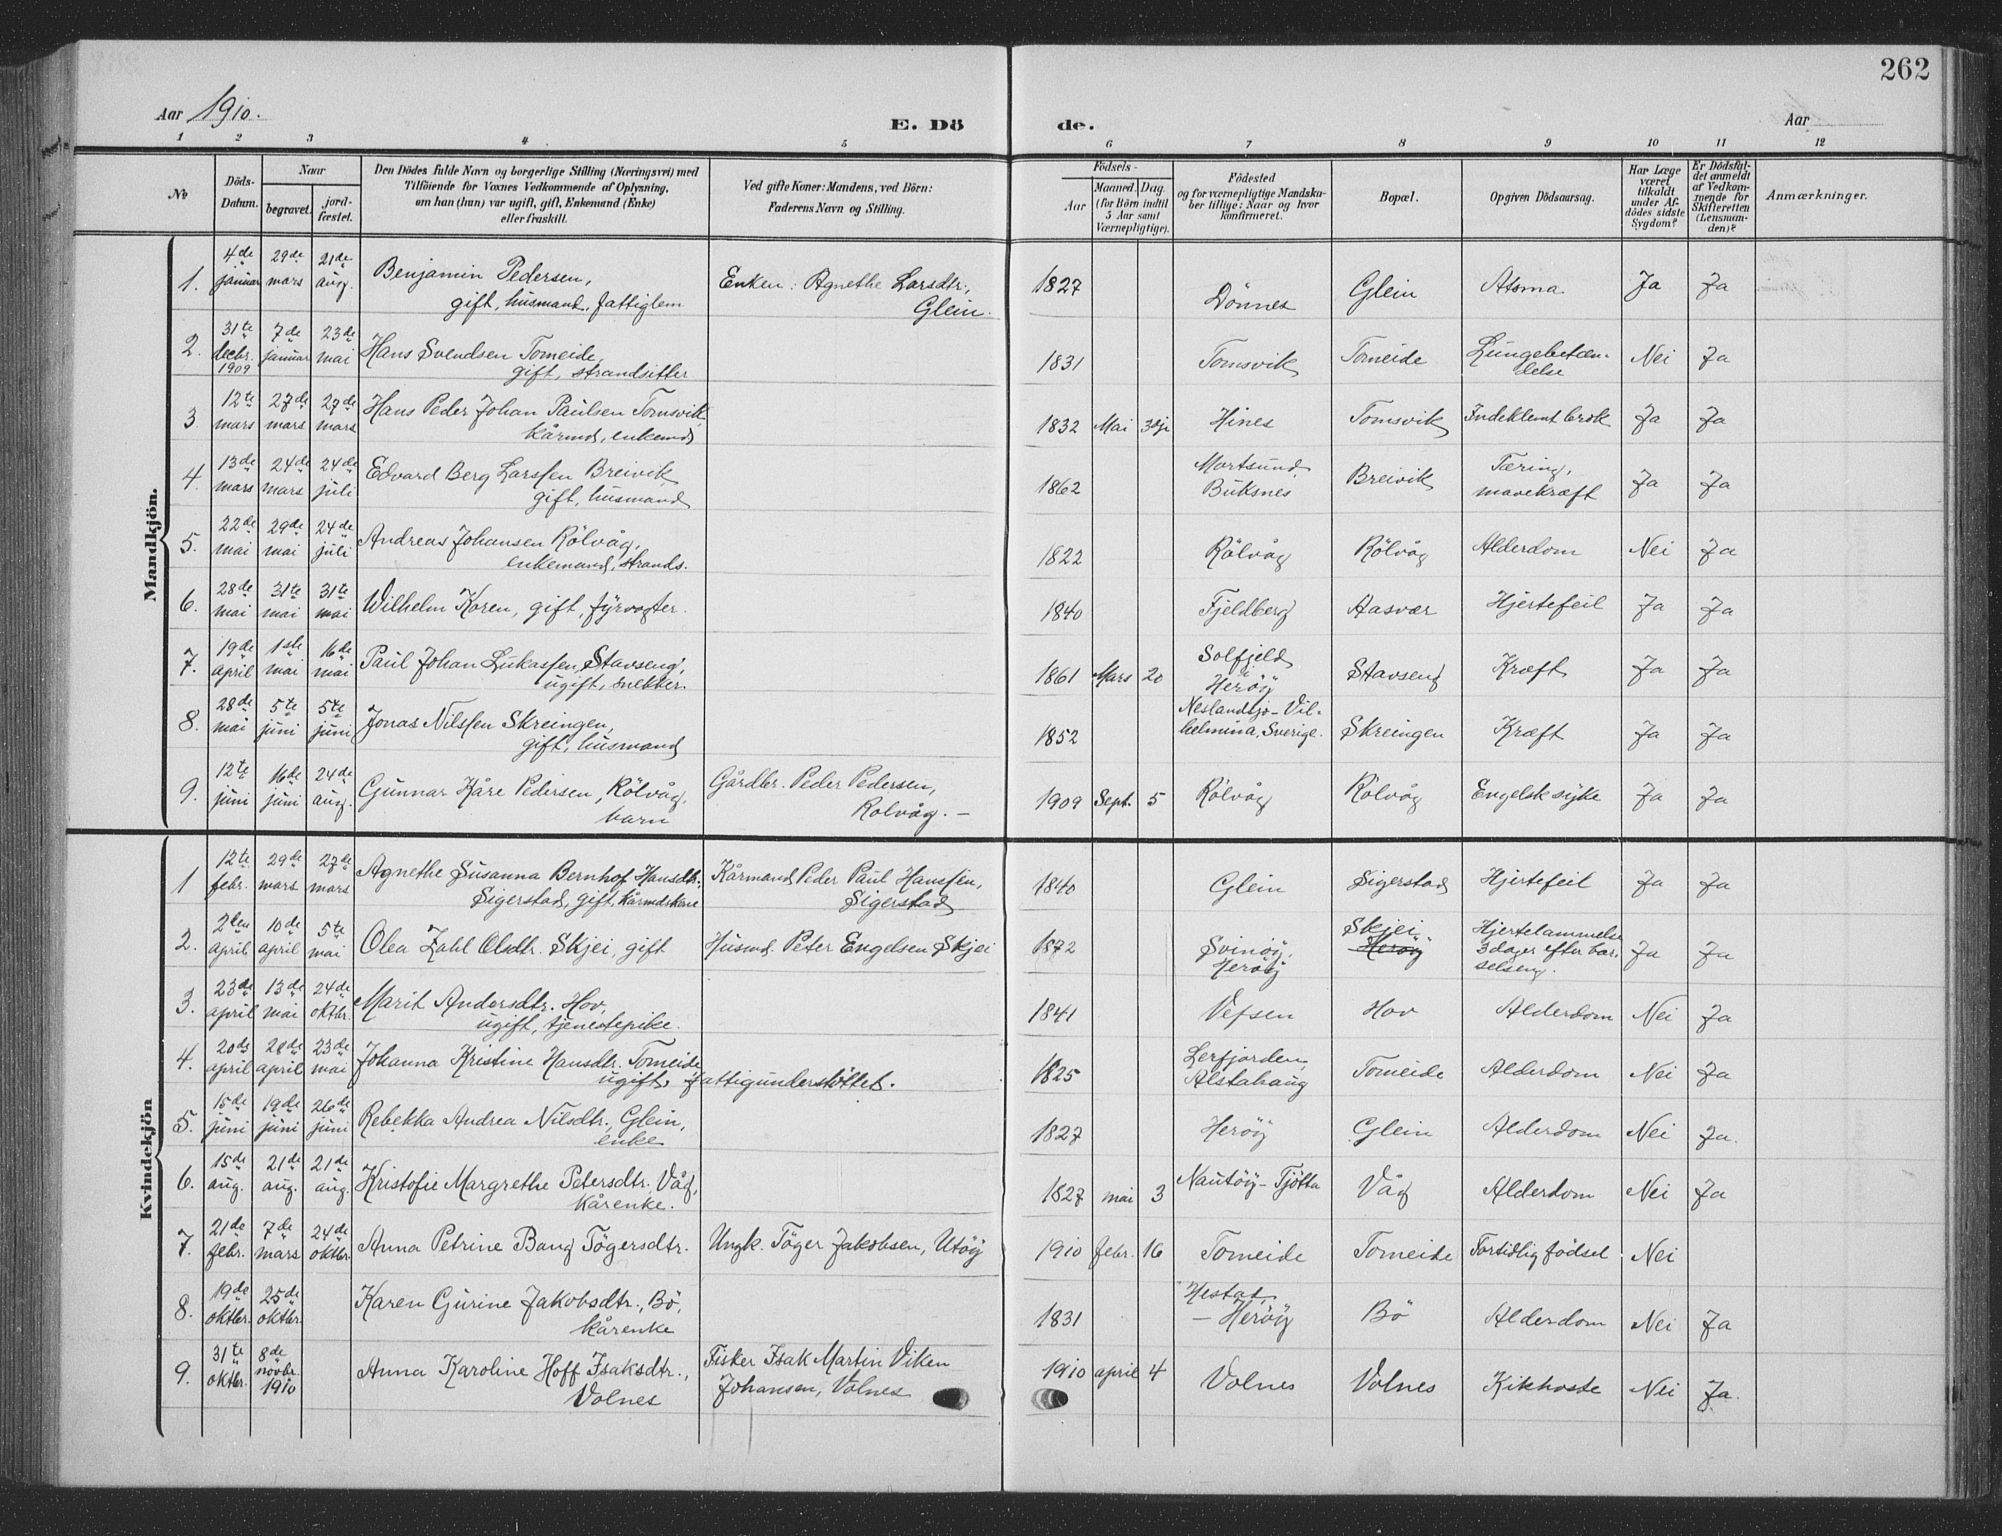 262
Aar 1910.
E. Dö de.
Aar
1 2 3 4 5 6 7 8 9 10 11 12
No
Döds-Datum.
Naar
begravet.
jord-fæstet.
Den Dödes fulde Navn og borgerlige Stilling (Næringsvei) med
Tilföiende for Voxnes Vedkommende af Oplysning,
om han (hun) var ugift, gift, Enkemand (Enke)
eller fraskilt.
Ved gifte Koner: Mandens, ved Börn:
Faderens Navn og Stilling.
Födsels-
Aar
Maaned. Dag.
(for Börn indtil
5 Aar samt
Værnepligtige).
Födested
og for værnepligtige Mandskaber tillige: Naar og hvor
konfirmeret.
Bopæl.
Opgiven Dödsaarsag.
Har Læge
været
tilkaldt
under Afdödes sidste
Sygdom?
Er Dödsfaldet anmeldt
af Vedkommende for
Skifteretten
(Lensmanden)?
Anmærkninger.
Mandkjön.
1. 4de januar 29de mars 21de aug. Benjamin Pedersen, gift, husmand, fattiglem Enken: Agnethe Larsdtr., Glein. 1827 Dönnes Glein Atsma. Ja Ja
2. 31te decbr. 1909 7de januar 23de mai Hans Svendsen Tomeide, gift, strandsitter 1831 Tomsvik Tomeide Lungebetændelse Nei Ja
3. 12te mars 27de mars 27de mars Hans Peder Johan Paulsen Tomsvik, kårmd, enkemd 1832 Mai 3dje Hines Tomsvik Indeklemt brok Ja Ja
4. 13de mars 24de mars 24de juli Edvard Berg Larssen Breivik, gift, husmand 1862 Mortsund, Buksnes Breivik Tæring, mavekræft Ja Ja
5. 22de mai 29de mai 24de juli Andreas Johansen Rölvåg, enkemand, strands. 1822 Rölvåg Rölvåg Alderdom Nei Ja
6. 28de mai 31te mai 31te mai Wilhelm Koren, gift, fyrvogter. 1840 Fjeldberg Aasvær Hjertefeil Ja Ja
7. 19de april 1ste mai 16de mai Paul Johan Lukassen, Stavseng, ugift, snekker. 1861 Mars 20 Solfjeld Heröy Stavseng Kræft Ja Ja
8. 28de mai 5te juni 5te juni Jonas Nilssen Skreingen, gift, husmand 1852 Neslandsjö-Vilhelmina, Sverige. Skreingen Kræft Ja Ja
9. 12te juni 16de juni 24de aug. Gunnar Kåre Pedersen, Rölvåg, barn Gårdbr. Peder Pedersen, Rolvåg. - 1909 Sept. 5 Rölvåg Rölvåg Engelsk syke Ja Ja
Kvindekjön
1 12te febr. 29de mars 27de mars Agnethe Susanna Bernhof Hansdtr. Sigerstad, gift, kårmdskone Kårmand Peder Paul Hanssen, Sigerstad 1840 Glein Sigerstad Hjertefeil Ja Ja
2. 2den april 10de april 5te mai Olea Zahl Olsdtr. Skjei, gift Husmd. Peter Engelsen Skjei 1872 Svinöy, Heröy Skjei Heröy Hjertelammelse 3 dager efter barselseng. Ja Ja
3. 23de april 13de mai 24de oktbr. Marit Andersdtr. Hov, ugift, tjenestepike. 1841 Vefsen Hov Alderdom Nei Ja
4. 20de april 28de april 23de mai Johanna Kristine Hansdtr. Tomeide, ugift, fattigunderstöttet. 1825 Lerfjorden, Alstahaug Tomeide Alderdom Nei Ja
5. 15de juni 19de juni 26de juni Rebekka Andrea Nilsdtr., Glein, enke 1827 Heröy Glein Alderdom Nei Ja.
6. 15de aug. 21de aug. 21de aug. Kristofie Margrethe Petersdtr. Våg, kårenke. 1827 mai 3 Nautöy-Tjötta Våg Alderdom Nei Ja
7. 21de febr. 7de mars 24de oktbr. Anna Petrine Bang Tögersdtr. Ungk. Töger Jakobsen, Utöy 1910 febr. 16 Tomeide Tomeide Fortidlig födsel Nei
8. 19de oktbr. 25de oktbr. Karen Gurine Jakobsdtr., Bö, kårenke 1831 Hestad, - Heröy Bö Alderdom Nei Ja
9. 31te oktbr. 8de novbr. 1910 Anna Karoline Hoff Isaksdtr., Volnes Fisker Isak Martin Viken Johansen, Volnes 1910 april 4 Volnes Volnes Kikhoste Nei Ja.